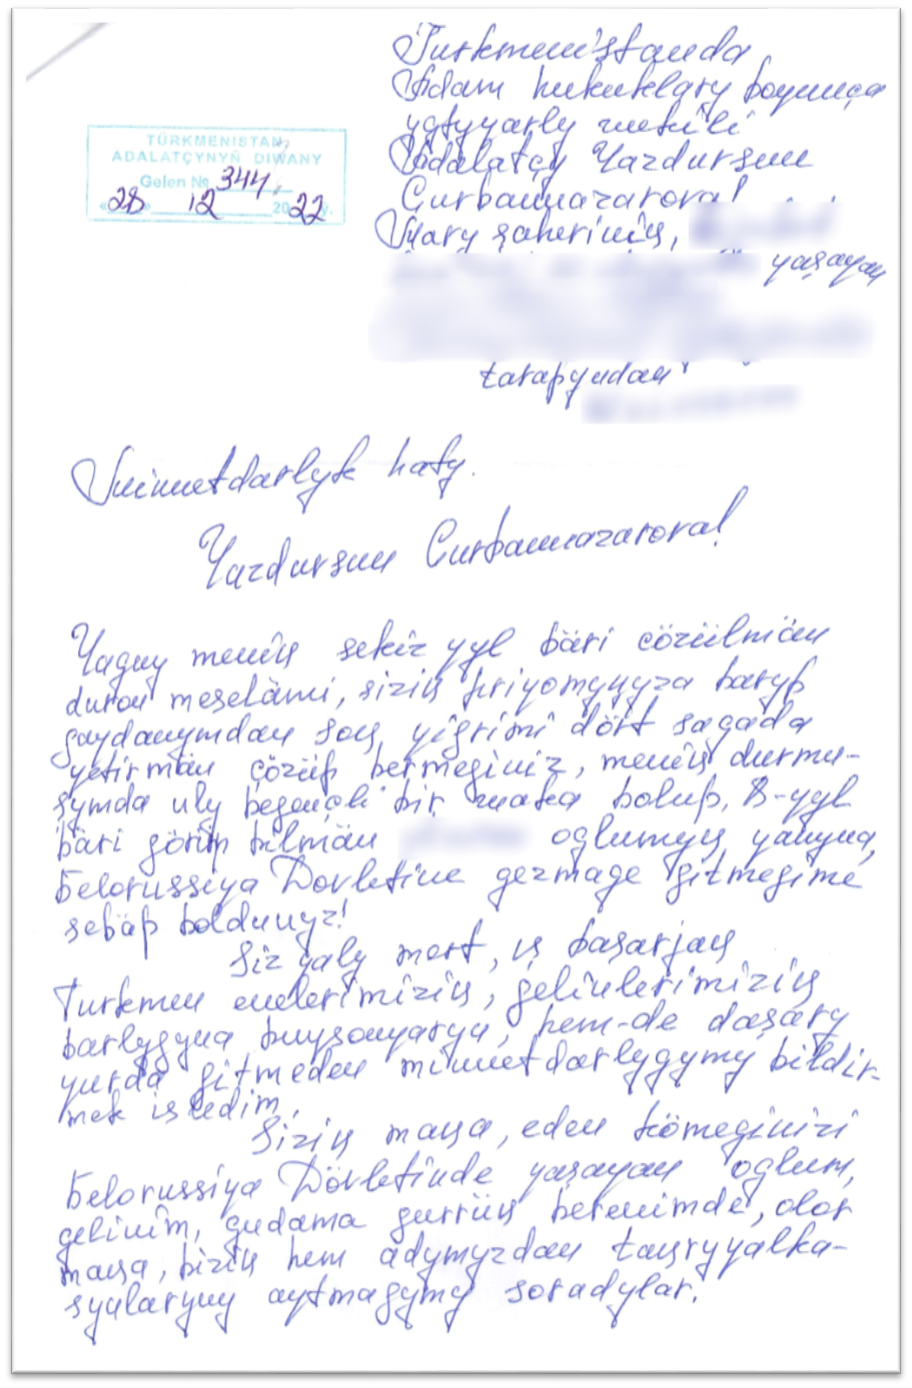 Türkmenistanda
Adam hukuklary boýunça
ygtyýarly wekili
Adalatçy Ýazdursun
Gurbannazarowa!
TÜRKMENISTAN
ADALATÇYNYŇ DIWANY
Gelen № 344
«28» 12 2022 ý.
Mary şäheriniň,
ýaşaýan
tarapyndan
Minnetdarlyk haty.
Ýazdursun Gurbannazarowa!
Ýagny meniň sekiz ýyl bäri çözülmän
duran meselämi, siziň priýomyňyza baryp
gaýdanymdan soň ýigrimi dört sagada
ýetirmän çözüp bermeginiz, meniň durmu-
şymda uly begençli bir waka bolup, 8-ýyl
bäri görüp bilmän oglumyň ýanyna,
Belorussiýa Döwletine gezmäge gitmegime
sebäp bolduňyz!
Siz ýaly mert, iş başarjaň
Türkmen enelerimiziň, gelinlerimiziň
barlygyna buýsanýaryn, hem-de daşary
ýurda gitmeden minnetdarlygymy bildir-
mek isledim.
Siziň maňa, eden kömeginizi
Belorussiýa Döwletinde ýaşaýan oglum,
gelinim, gudama gürrüň berenimde, olar
maňa, biziň hem adymyzdan taňryýalka-
synlaryny aýtmagymy soradylar.